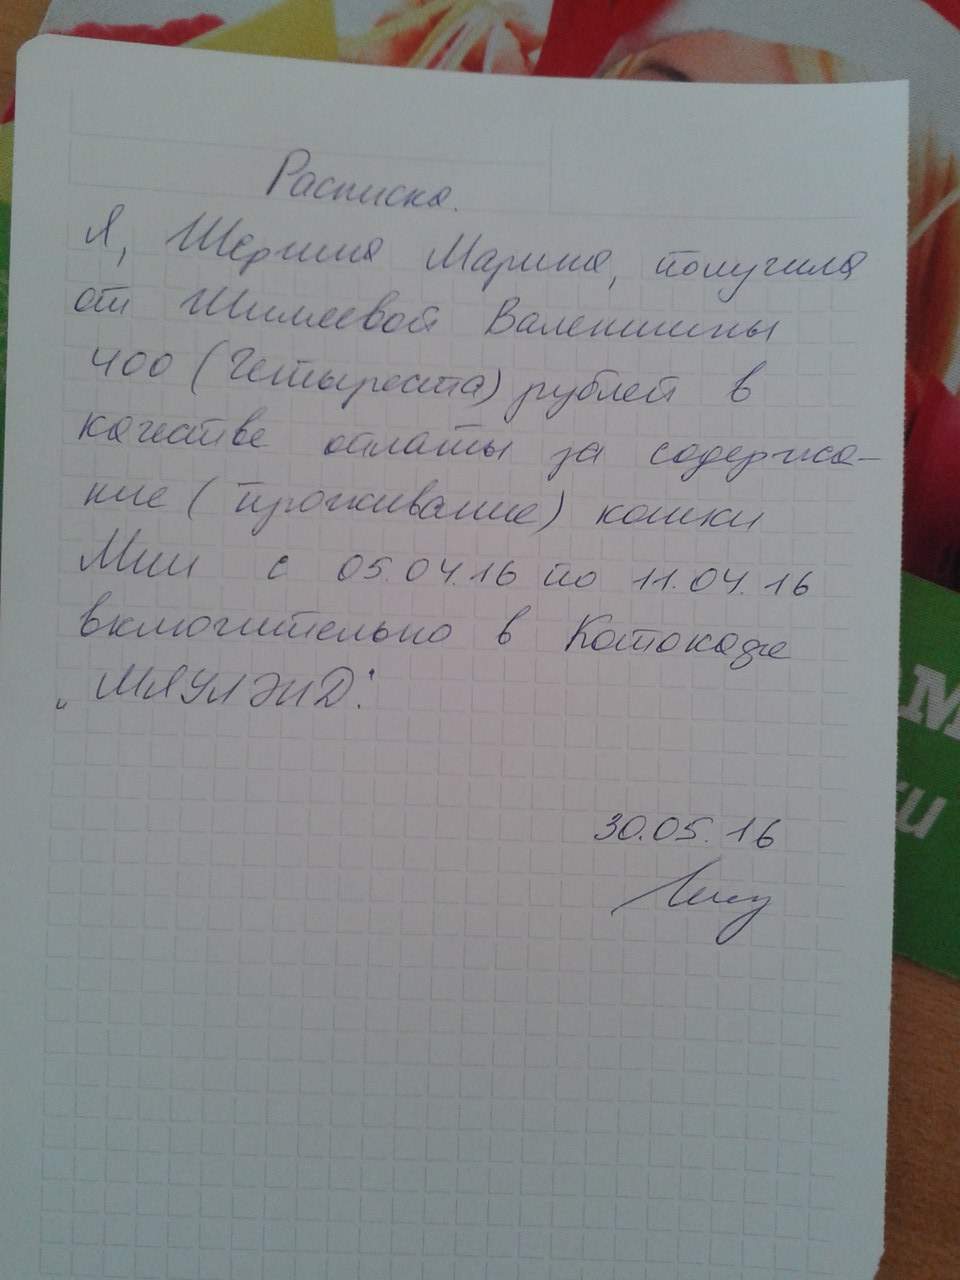 Расписка.
Я, Шерши­на Марина, получила
от Шимеевой Валентины
400 (Четыреста) рублей в
качестве оплаты за содержа-
ние (проживание) кошки
Мии с 05.04.16 по 11.04.16
включительно в Котокафе
„МЯУЛЭНД".
30.05.16
М
ru